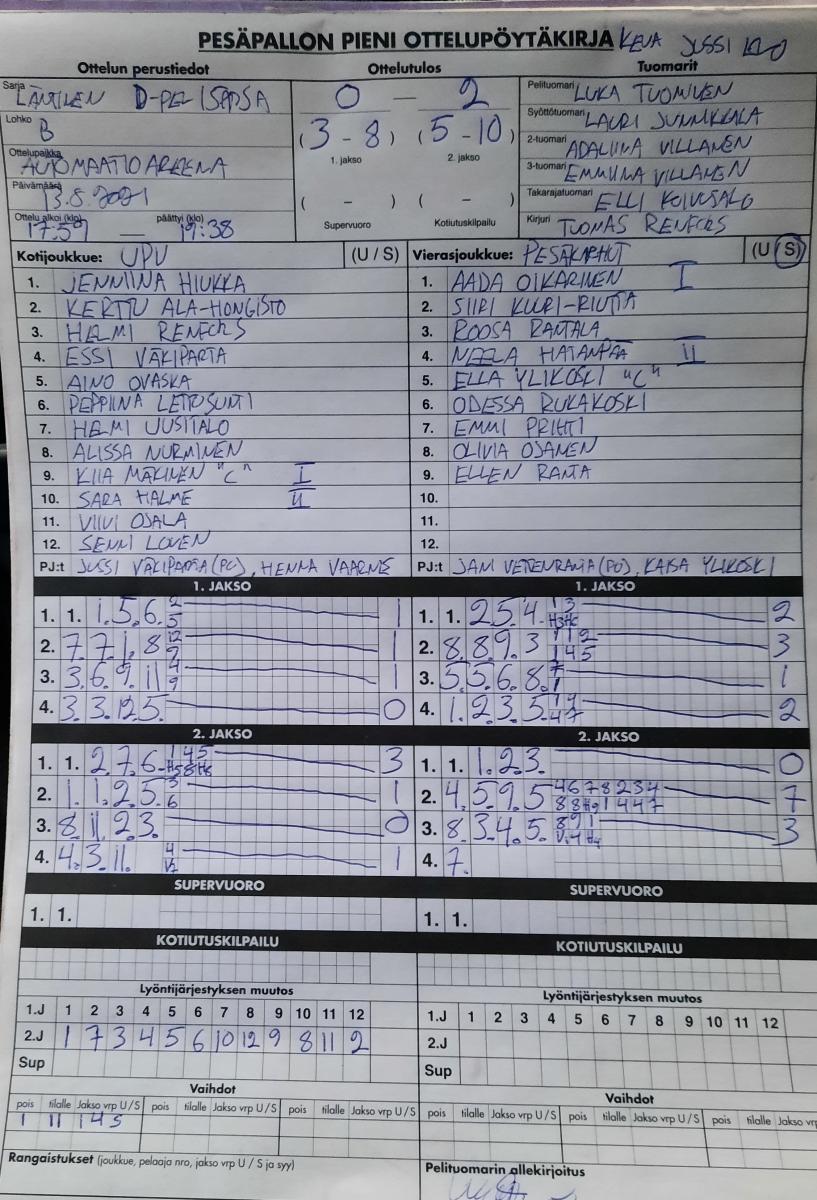 PESÄPALLON PIENI OTTELUPÖYTÄKIRJA KEVA JUSSI
Ottelun perustiedot Ottelutulos Tuomarit
Sarja LÄNTINEN D-PEL ISEPSA
Lohko B
Ottelupaikka AUTOMAATIO AREENA
Päivämäärä 13.8.2021
Ottelu alkoi (klo) 17:59 — päättyi (klo) 19:38
0 — 2
(3 - 8) (5 - 10)
1. jakso 2. jakso
( - ) ( - )
Supervuoro Kotiutuskilpailu
Pelituomari LUKA TUOMINEN
Syöttötuomari LAURI JUNNIKKALA
2-tuomari ADALIINA VILLANEN
3-tuomari EMMIINA VILLANEN
Takarajatuomari ELLI KOIVUSALO
Kirjuri TUOMAS RENFORS
Kotijoukkue: UPV (U / S)
1. JENNIINA HIUKKA
2. KERTTU ALA-HONGISTO
3. HELMI RENFORS
4. ESSI VÄKIPARTA
5. AINO OVASKA
6. PEPPIINA LETTOSUNTI
7. HELMI UUSITALO
8. ALISSA NURMINEN
9. KIIA MÄKINEN "C" I
10. SARA HALME II
11. VIIVI OJALA
12. SENNI LOVEN
PJ:t JUSSI VÄKIPARTA (PC), HENNA VAARNE
Vierasjoukkue: PESÄKARHUT (U / S)
1. AADA OIKARINEN I
2. SIIRI KUURI-RIUTTA
3. ROOSA RANTALA
4. NEELA HATANPÄÄ II
5. ELLA YLIKOSKI "C"
6. ODESSA RUKAKOSKI
7. EMMI PRIHTI
8. OLIVIA OJANEN
9. ELLEN RANTA
10.
11.
12.
PJ:t JANI VETTENRANTA (PC), KAISA YLIKOSKI
1. JAKSO
1. 1. 1. 5. 6. 2 5 1
2. 7. 7. 1. 8 12 9 1
3. 3. 6. 9. 11 4 9 1
4. 3. 3. 12. 5. 0
1. JAKSO
1. 1. 2. 5. 4. 1 3 H3 H6 2
2. 8. 8. 9. 3 1 1 2 1 4 5 3
3. 5. 5. 6. 8. 7 1 1
4. 1. 2. 3. 5. 1 4 4 7 2
2. JAKSO
1. 1. 2. 7. 6. 1 4 5 H5 8 H6 3
2. 1. 1. 2. 5. 3 6 1
3. 8. 11. 2. 3. 0
4. 4. 3. 11. 4 V2 1
2. JAKSO
1. 1. 1. 2. 3. 0
2. 4. 5. 9. 5 4 6 7 8 2 3 4 8 8 H9 1 4 4 7 7
3. 8. 3. 4. 5. 8 9 1 V1 4 H4 3
4. 7.
SUPERVUORO
1. 1.
SUPERVUORO
1. 1.
KOTIUTUSKILPAILU
KOTIUTUSKILPAILU
Lyöntijärjestyksen muutos
1.J 1 2 3 4 5 6 7 8 9 10 11 12
2.J 1 7 3 4 5 6 10 12 9 8 11 2
Sup
Lyöntijärjestyksen muutos
1.J 1 2 3 4 5 6 7 8 9 10 11 12
2.J
Sup
Vaihdot
pois tilalle Jakso vrp U / S pois tilalle Jakso vrp U / S pois tilalle Jakso vrp U / S
1 11 1 4 S
Vaihdot
pois tilalle Jakso vrp U / S pois tilalle Jakso vrp U / S pois tilalle Jakso vrp
Rangaistukset (joukkue, pelaaja nro, jakso vrp U / S ja syy)
Pelituomarin allekirjoitus